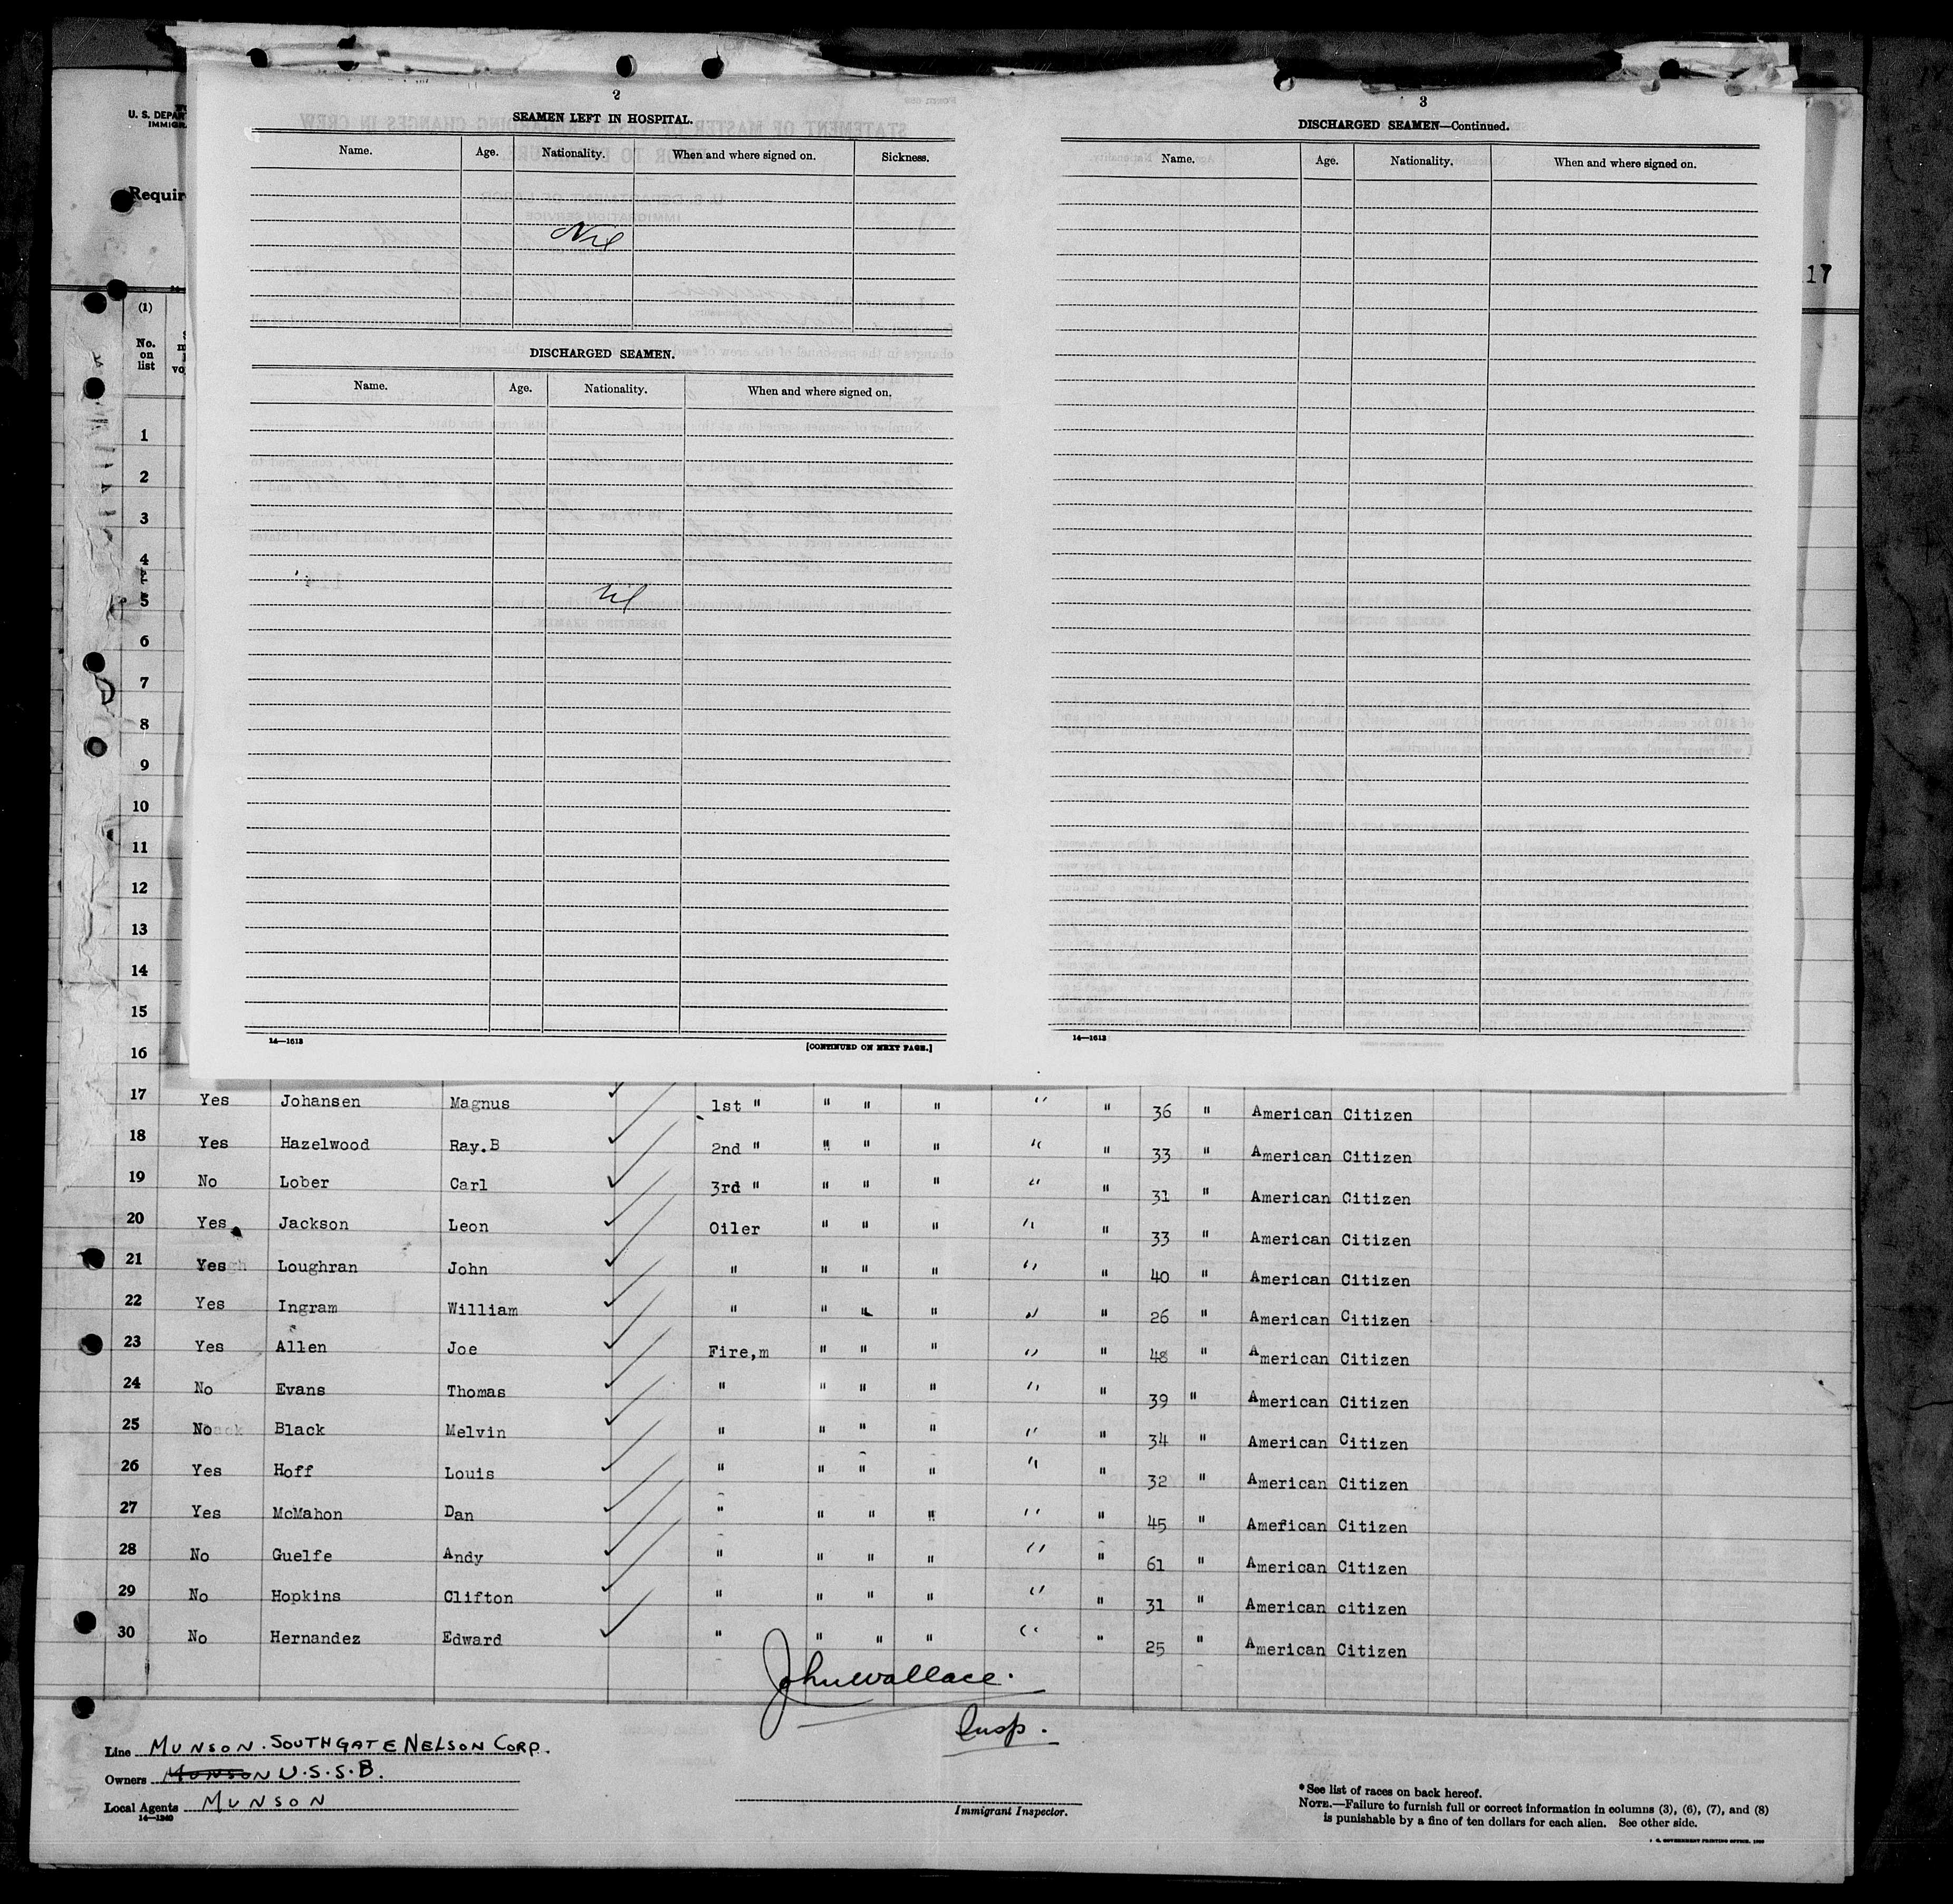 2
SEAMEN LEFT IN HOSPITAL.
Name. Age. Nationality. When and where signed on. Sickness.
Nil
DISCHARGED SEAMEN.
Name. Age. Nationality. When and where signed on.
Nil
14—1613
[CONTINUED ON NEXT PAGE.]
3
DISCHARGED SEAMEN—Continued.
Name. Age. Nationality. When and where signed on.
14—1613
U. S. DEPAR
IMMIGRA
Requir
17
(1)
No.
on
list
1
2
3
4
5
6
7
8
9
10
11
12
13
14
15
16
17 Yes Johansen Magnus 1st " " " " " " 36 " American Citizen
18 Yes Hazelwood Ray.B 2nd " " " " " " 33 " American Citizen
19 No Lober Carl 3rd " " " " " " 31 " American Citizen
20 Yes Jackson Leon Oiler " " " " " 33 " American Citizen
21 Yes Loughran John " " " " " " 40 " American Citizen
22 Yes Ingram William " " " " " " 26 " American Citizen
23 Yes Allen Joe Fire,m " " " " " 48 " American Citizen
24 No Evans Thomas " " " " " " 39 " American Citizen
25 No Black Melvin " " " " " " 34 " American Citizen
26 Yes Hoff Louis " " " " " " 32 " American Citizen
27 Yes McMahon Dan " " " " " " 45 " American Citizen
28 No Guelfe Andy " " " " " " 61 " American Citizen
29 No Hopkins Clifton " " " " " " 31 " American citizen
30 No Hernandez Edward " " " " " " 25 " American Citizen
John Wallace.
Insp.
Line MUNSON. SOUTHGATE NELSON CORP.
Owners MUNSON U.S.S.B.
Local Agents MUNSON
14—1240
Immigrant Inspector.
*See list of races on back hereof.
NOTE.—Failure to furnish full or correct information in columns (3), (6), (7), and (8)
is punishable by a fine of ten dollars for each alien. See other side.